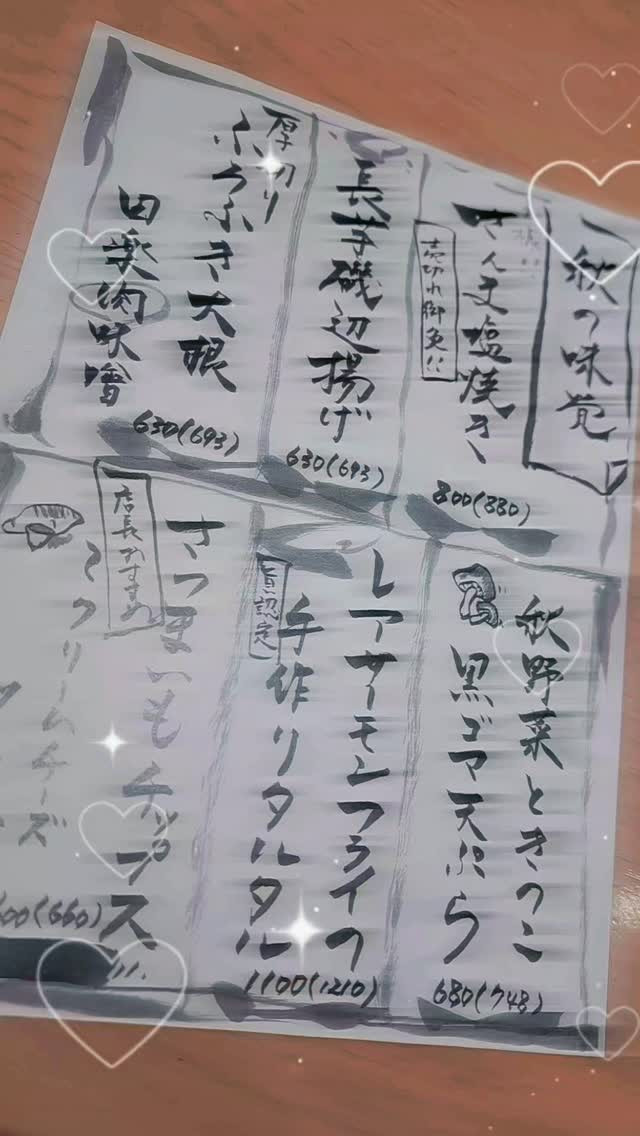 秋の味覚
さんま塩焼き
売切れ御免!!
800(880)
長芋磯辺揚げ
630(693)
厚切り
ふろふき大根
田楽肉味噌
630(693)
秋野菜ときのこ
黒ゴマ天ぷら
680(748)
レアサーモンフライの
手作りタルタル
認定
1100(1210)
さつまいもチップス
店長おすすめ
クリームチーズ
600(660)